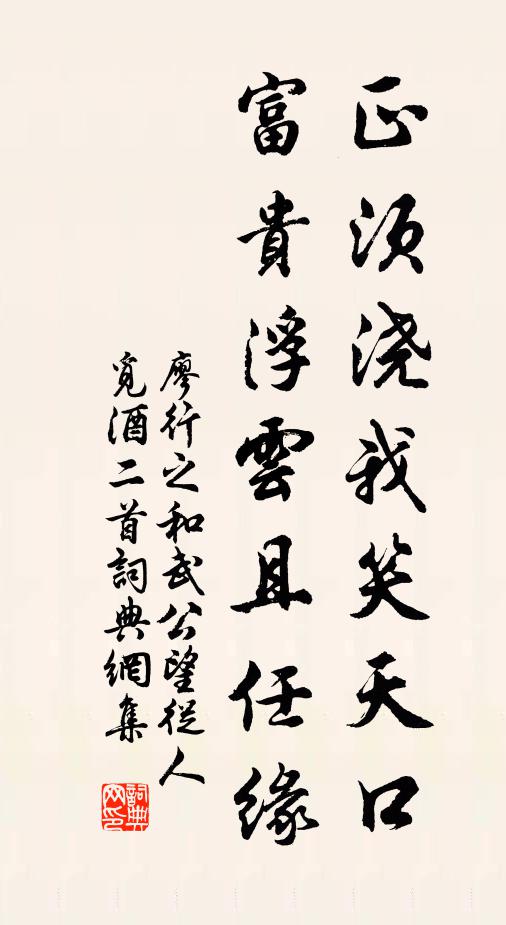 正须浇我笑天口
富貴浮雲且任緣
廖行之和武公望從人
覓酒二首詞典網集
詞典
网印